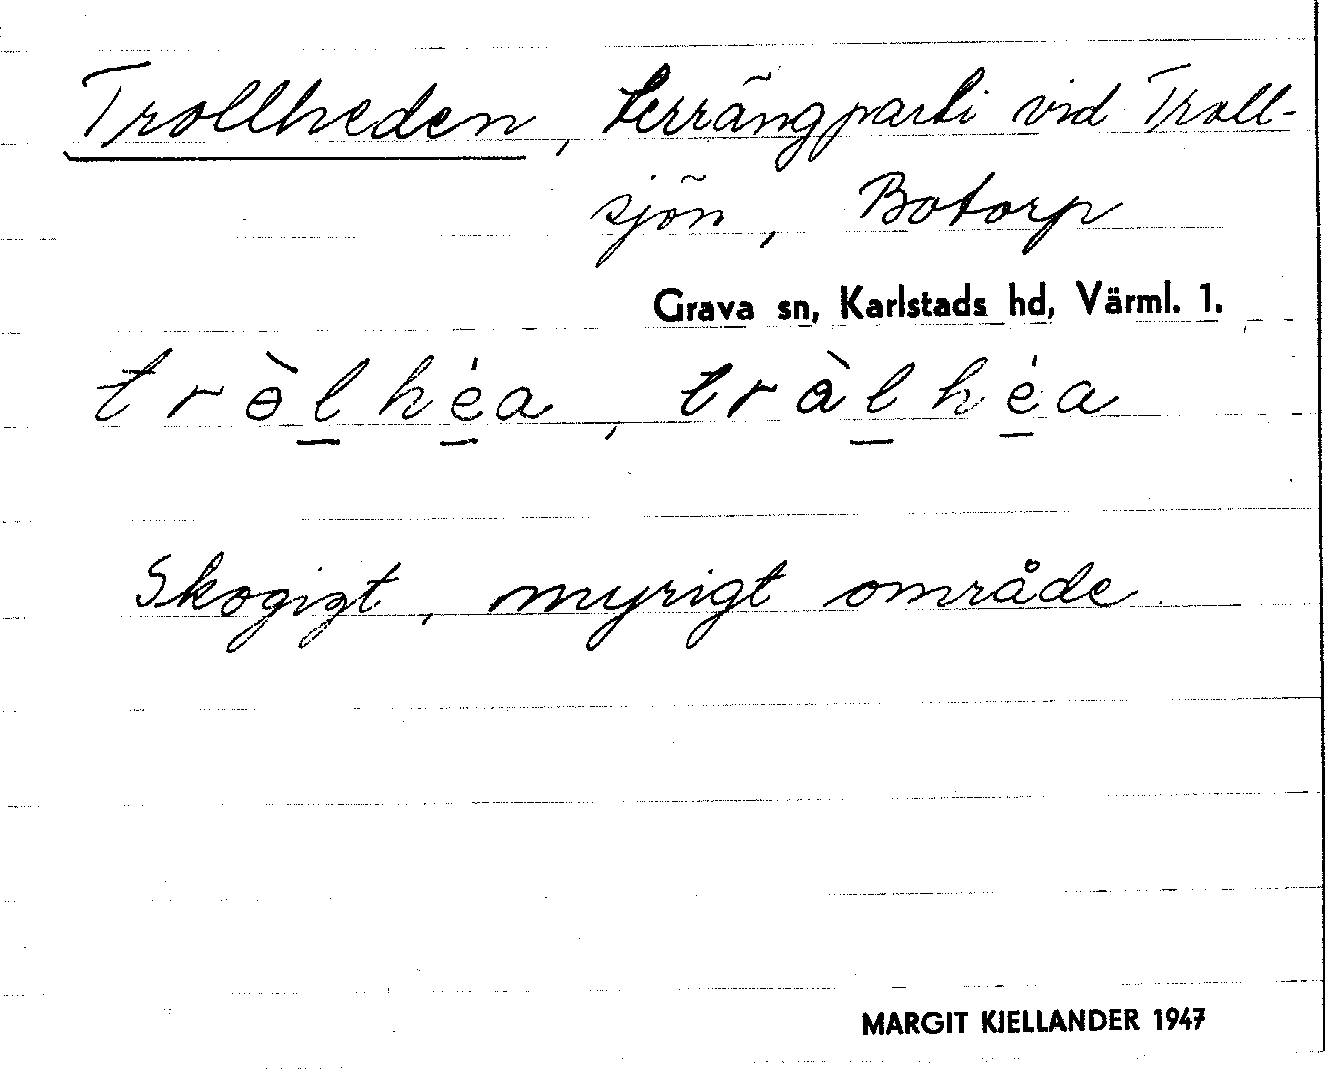 Trollheden, terrängparti vid Troll-
sjön, Botorp
Grava sn, Karlstads hd, Värml. 1.
trɵ̀l̲hé̲a, tràl̲hé̲a
Skogigt, myrigt område
MARGIT KJELLANDER 1947